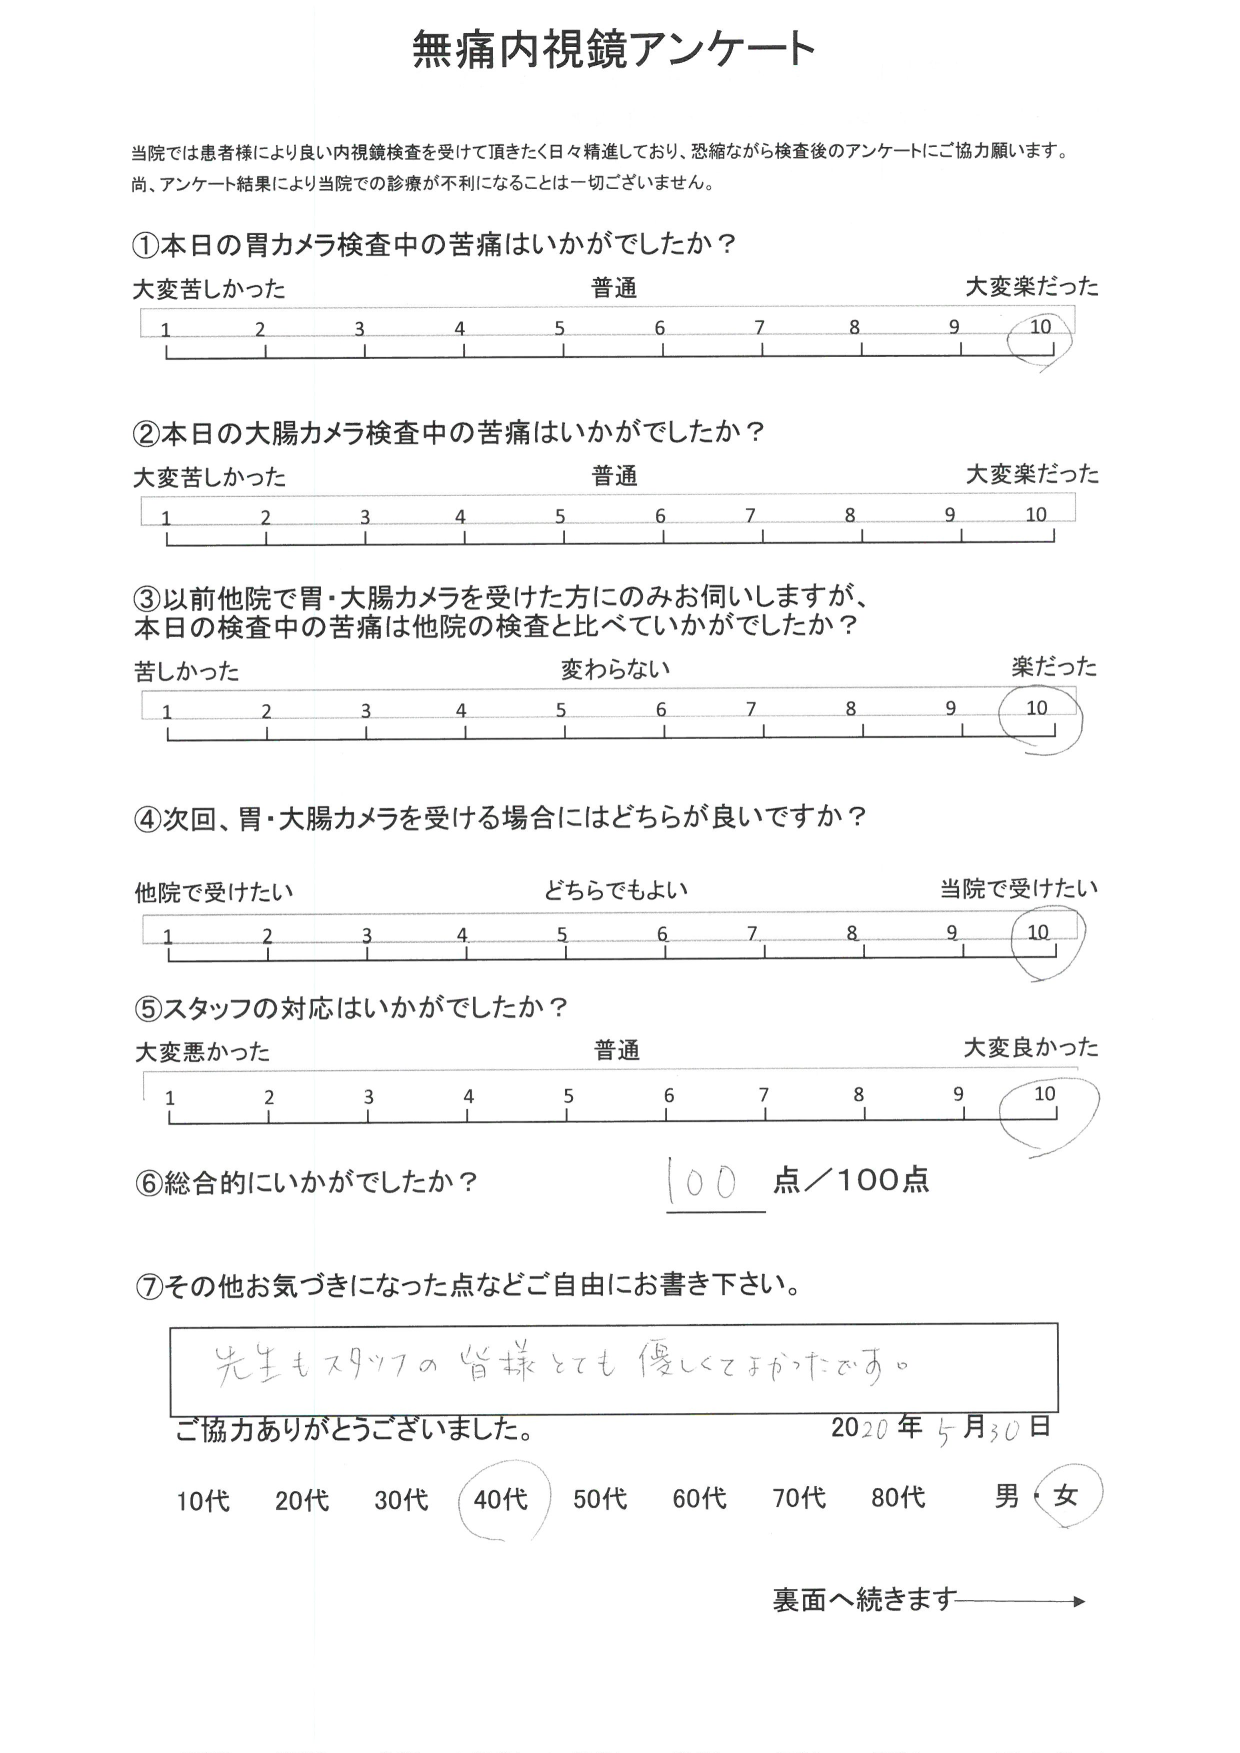 無痛内視鏡アンケート
当院では患者様により良い内視鏡検査を受けて頂きたく日々精進しており、恐縮ながら検査後のアンケートにご協力願います。
尚、アンケート結果により当院での診療が不利になることは一切ございません。
①本日の胃カメラ検査中の苦痛はいかがでしたか？
大変苦しかった 普通 大変楽だった
1 2 3 4 5 6 7 8 9 10
②本日の大腸カメラ検査中の苦痛はいかがでしたか？
大変苦しかった 普通 大変楽だった
1 2 3 4 5 6 7 8 9 10
③以前他院で胃・大腸カメラを受けた方にのみお伺いしますが、
本日の検査中の苦痛は他院の検査と比べていかがでしたか？
苦しかった 変わらない 楽だった
1 2 3 4 5 6 7 8 9 10
④次回、胃・大腸カメラを受ける場合にはどちらが良いですか？
他院で受けたい どちらでもよい 当院で受けたい
1 2 3 4 5 6 7 8 9 10
⑤スタッフの対応はいかがでしたか？
大変悪かった 普通 大変良かった
1 2 3 4 5 6 7 8 9 10
⑥総合的にいかがでしたか？ 100 点／100点
⑦その他お気づきになった点などご自由にお書き下さい。
先生もスタッフの皆様とても優しくてよかったです。
ご協力ありがとうございました。 2020年5月30日
10代 20代 30代 40代 50代 60代 70代 80代 男・女
裏面へ続きます